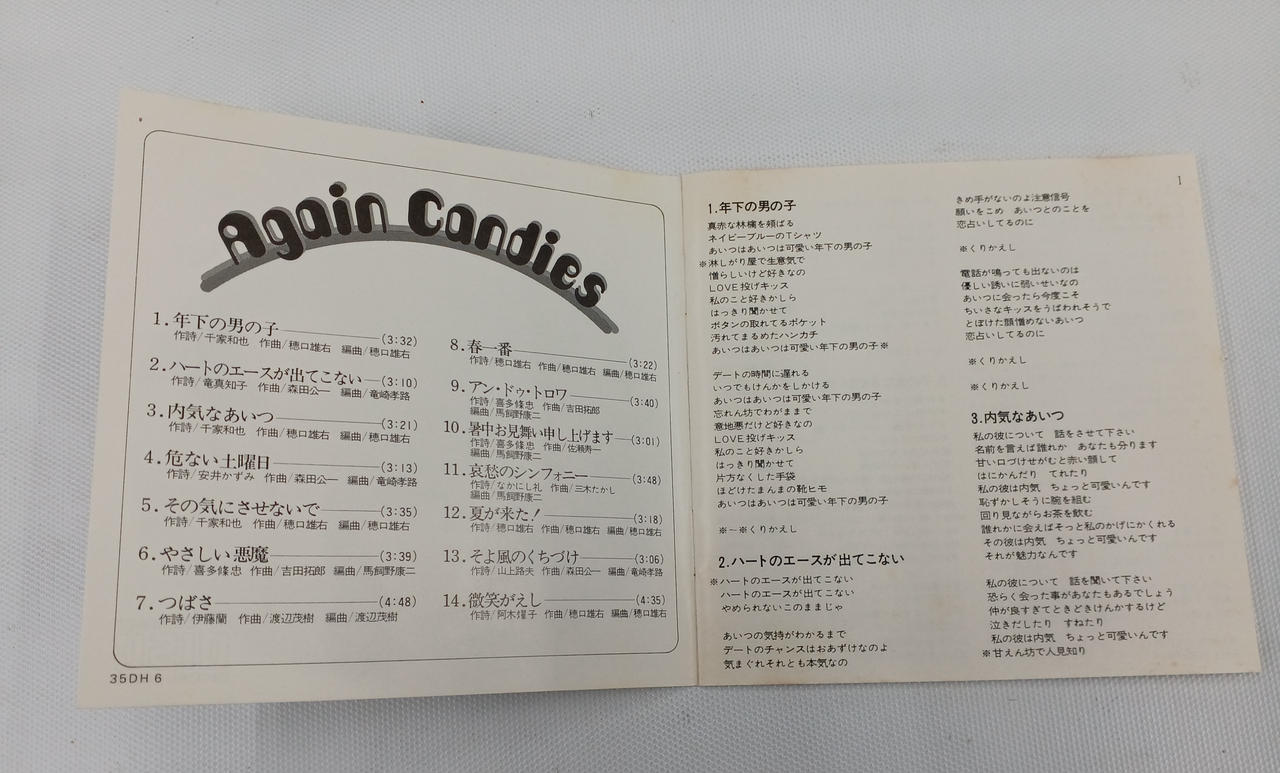 Again Candies
1.年下の男の子 (3:32)
作詩/千家和也 作曲/穂口雄右 編曲/穂口雄右
2.ハートのエースが出てこない (3:10)
作詩/竜真知子 作曲/森田公一 編曲/竜崎孝路
3.内気なあいつ (3:21)
作詩/千家和也 作曲/穂口雄右 編曲/穂口雄右
4.危ない土曜日 (3:13)
作詩/安井かずみ 作曲/森田公一 編曲/竜崎孝路
5.その気にさせないで (3:35)
作詩/千家和也 作曲/穂口雄右 編曲/穂口雄右
6.やさしい悪魔 (3:39)
作詩/喜多條忠 作曲/吉田拓郎 編曲/馬飼野康二
7.つばさ (4:48)
作詩/伊藤蘭 作曲/渡辺茂樹 編曲/渡辺茂樹
8.春一番 (3:22)
作詩/穂口雄右 作曲/穂口雄右 編曲/穂口雄右
9.アン・ドゥ・トロワ (3:40)
作詩/喜多條忠 作曲/吉田拓郎
編曲/馬飼野康二
10.暑中お見舞い申し上げます (3:01)
作詩/喜多條忠 作曲/佐瀬寿一
編曲/馬飼野康二
11.哀愁のシンフォニー (3:48)
作詩/なかにし礼 作曲/三木たかし
編曲/馬飼野康二
12.夏が来た! (3:18)
作詩/穂口雄右 作曲/穂口雄右 編曲/穂口雄右
13.そよ風のくちづけ (3:06)
作詩/山上路夫 作曲/森田公一 編曲/竜崎孝路
14.微笑がえし (4:35)
作詩/阿木燿子 作曲/穂口雄右 編曲/穂口雄右
35DH 6
1
1.年下の男の子
真赤な林檎を頬ばる
ネイビーブルーのTシャツ
あいつはあいつは可愛い年下の男の子
※淋しがり屋で生意気で
憎らしいけど好きなの
LOVE投げキッス
私のこと好きかしら
はっきり聞かせて
ボタンの取れてるポケット
汚れてまるめたハンカチ
あいつはあいつは可愛い年下の男の子※
デートの時間に遅れる
いつでもけんかをしかける
あいつはあいつは可愛い年下の男の子
忘れん坊でわがままで
意地悪だけど好きなの
LOVE投げキッス
私のこと好きかしら
はっきり聞かせて
片方なくした手袋
ほどけたまんまの靴ヒモ
あいつはあいつは可愛い年下の男の子
※〜※くりかえし
2.ハートのエースが出てこない
※ハートのエースが出てこない
ハートのエースが出てこない
やめられないこのままじゃ
あいつの気持がわかるまで
デートのチャンスはおあずけなのよ
気まぐれそれとも本気なの
きめ手がないのよ注意信号
願いをこめ あいつとのことを
恋占いしてるのに
※くりかえし
電話が鳴っても出ないのは
優しい誘いに弱いせいなの
あいつに会ったら今度こそ
ちいさなキッスをうばわれそうで
とぼけた顔憎めないあいつ
恋占いしてるのに
※くりかえし
※くりかえし
3.内気なあいつ
私の彼について 話をさせて下さい
名前を言えば誰れか あなたも分ります
甘い口づけせがむと赤い顔して
はにかんだり てれたり
私の彼は内気 ちょっと可愛いんです
恥ずかしそうに腕を組む
回り見ながらお茶を飲む
誰れかに会えばそっと私のかげにかくれる
その彼は内気 ちょっと可愛いんです
それが魅力なんです
私の彼について 話を聞いて下さい
恐らく会った事があなたもあるでしょう
仲が良すぎてときどきけんかするけど
泣きだしたり すねたり
私の彼は内気 ちょっと可愛いんです
※甘えん坊で人見知り